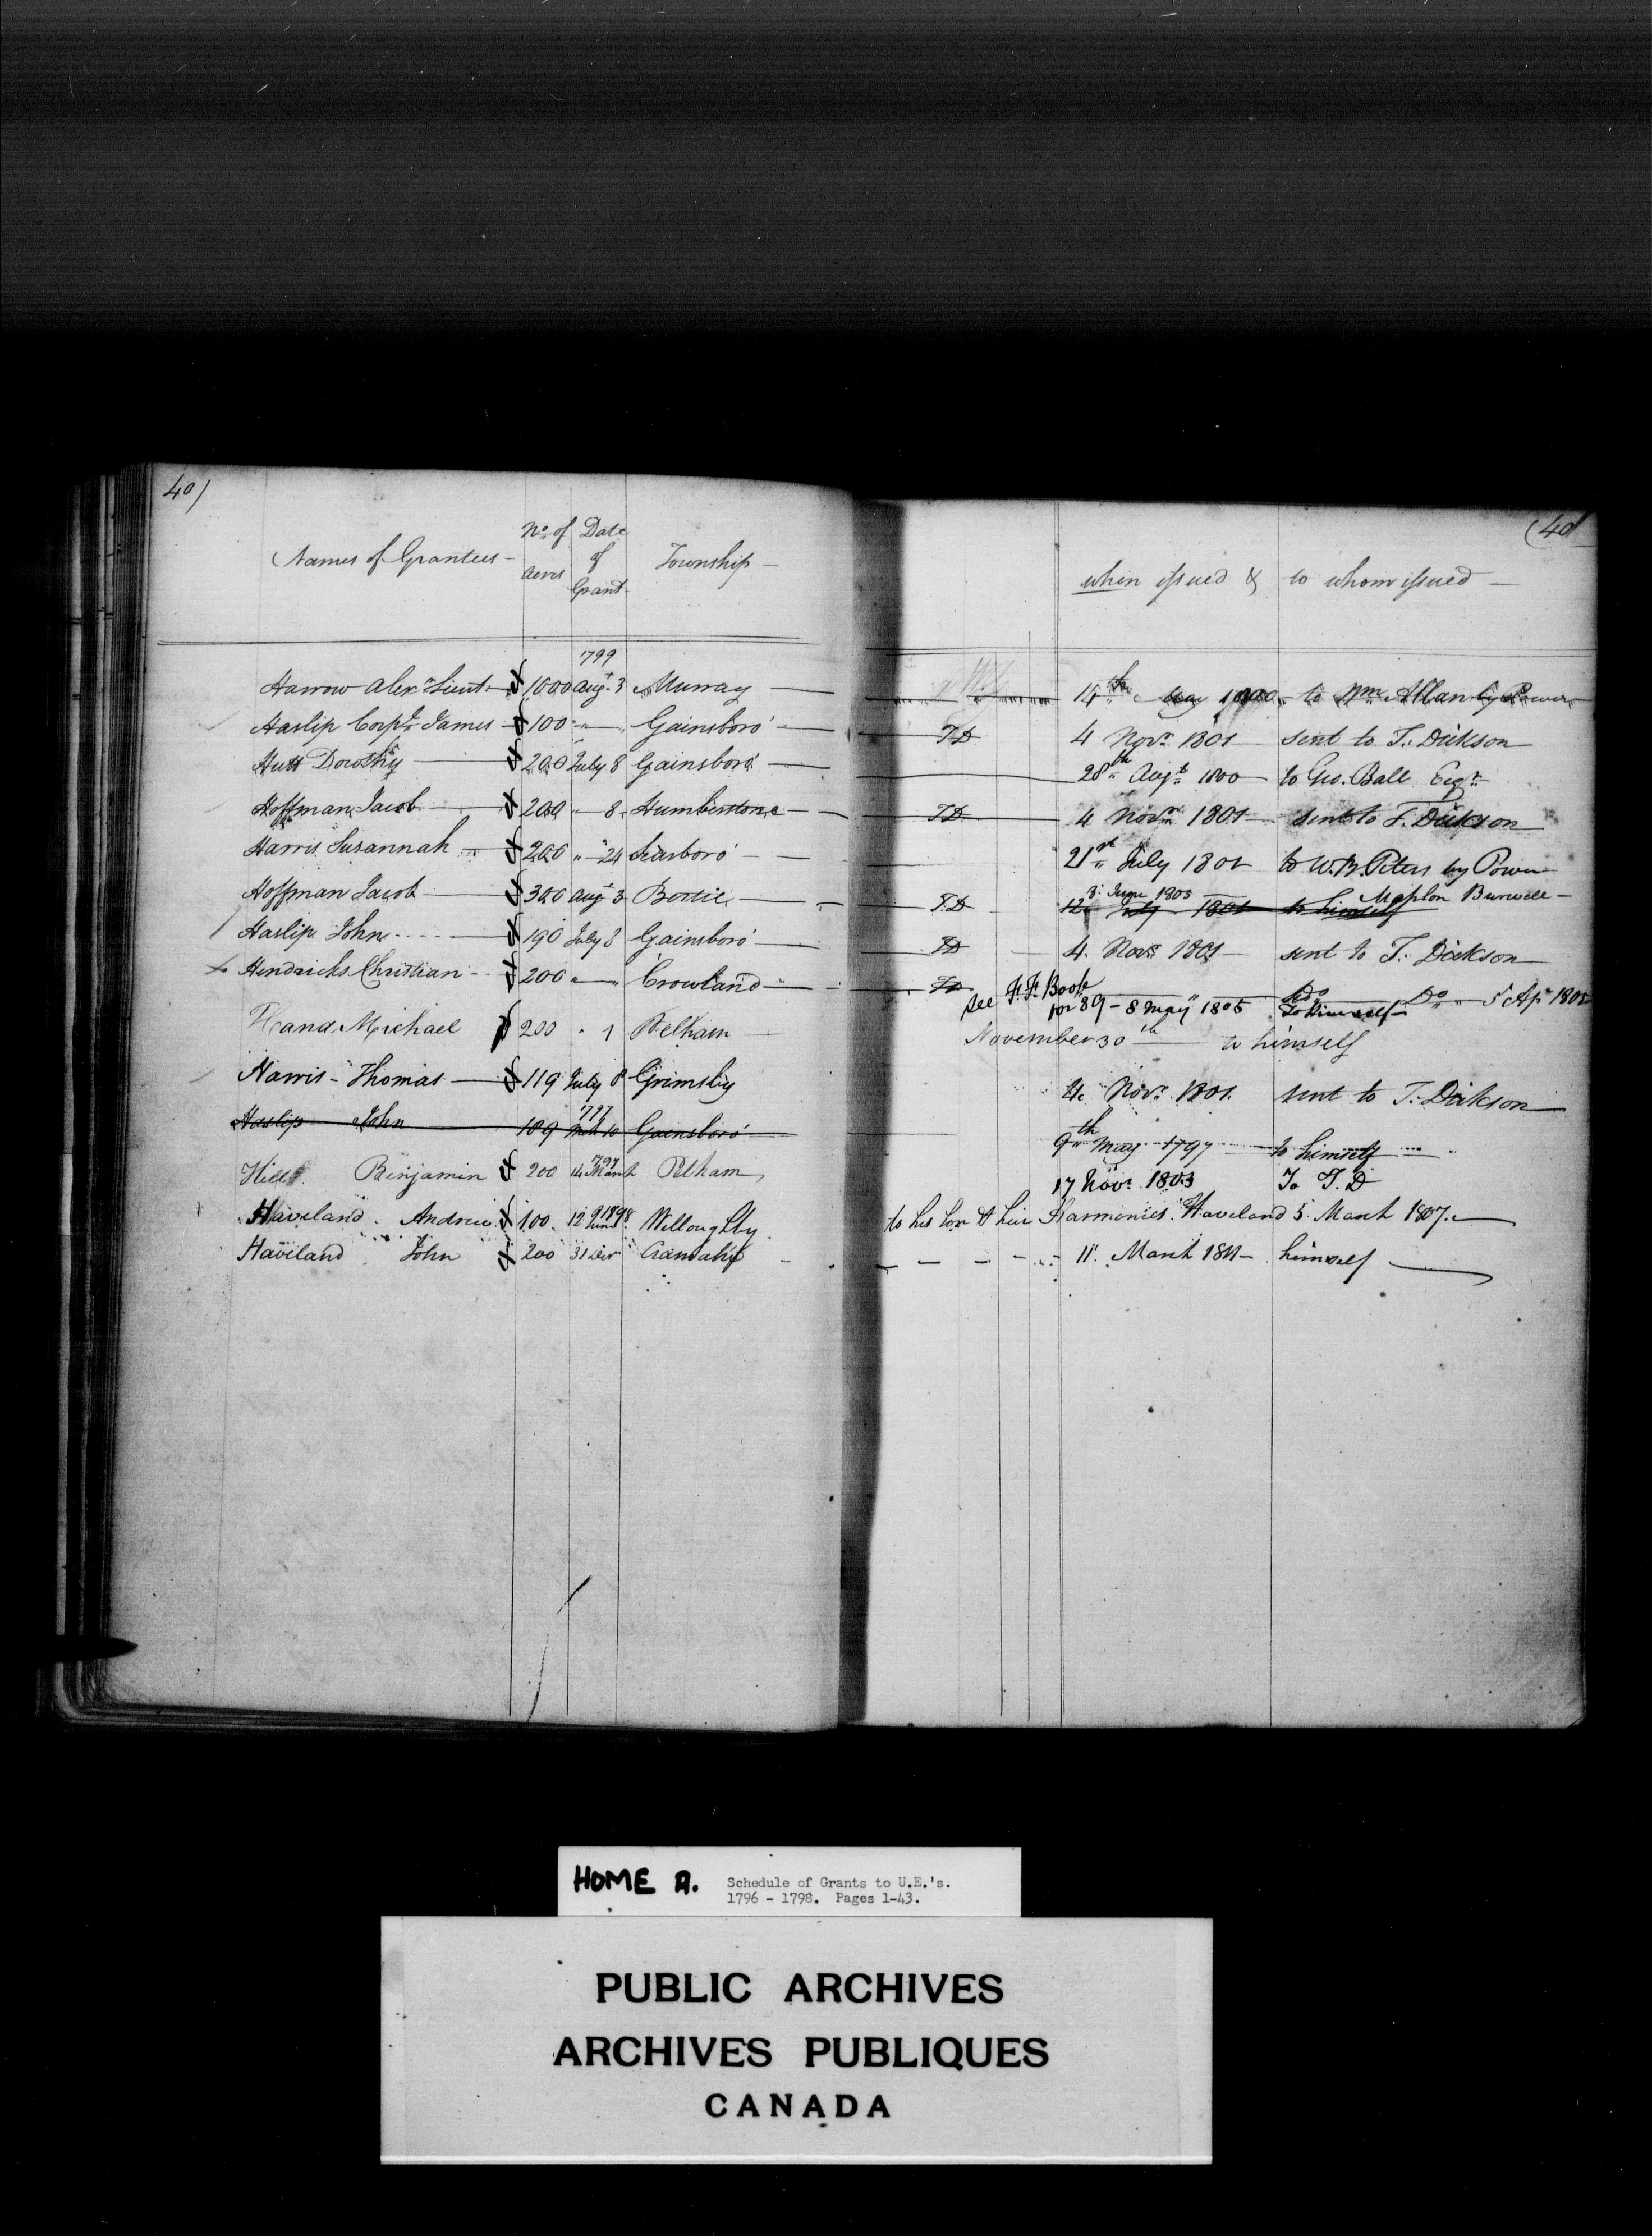 40)
Names of Grantees
No. of Acres
Date of Grant
Township
1799
Harrow Alexr. Lieut. 1000 Augt. 3 Murray
Haslip Corpl. James 100 " Gainsboro'
Hutt Dorothy 200 July 8 Gainsboro'
Hoffman Jacob 200 " 8 Humberstone
Harris Susannah 200 " 24 Scarboro'
Hoffman Jacob 300 Augt. 3 Bertie
Haslip John 190 July 8 Gainsboro'
Hendricks Christian 200 " Crowland
Hand Michael 200 " 1 Pelham
Harris - Thomas 119 July 8 Grimsby
Haslip John 189 1797 10 Gainsboro'
Hill Benjamin 200 14 March 1797 Pelham
Haveland Andrew 100 12 Willoughby
Haveland John 200 31
(40
when issued & to whom issued
14th May to Wm. Allan by Power
T.D 4 Novr. 1801 sent to T. Dickson
28th Augt. 1800 to Geo. Ball Esqr.
T.D 4 Novr. 1801 sent to T. Dickson
21st July 1801 to W. B. Peters by Power
T.D 3 June 1803 Mahlon Burwell
12 July 1801 to himself
T.D 4 Novr. 1801 sent to T. Dickson
T.D Do Do 5 Ap 1805
See Book for 89 - 8 May 1805 To himself
November 30th to himself
4 Novr. 1801. sent to T. Dickson
9th May 1797 to himself
17 Novr. 1803 To T. D
to his son & heir Haveland 5 March 1807.
11 March 1811 - himself
HOME A. Schedule of Grants to U.E.'s.
1796 - 1798. Pages 1-43.
PUBLIC ARCHIVES
ARCHIVES PUBLIQUES
CANADA